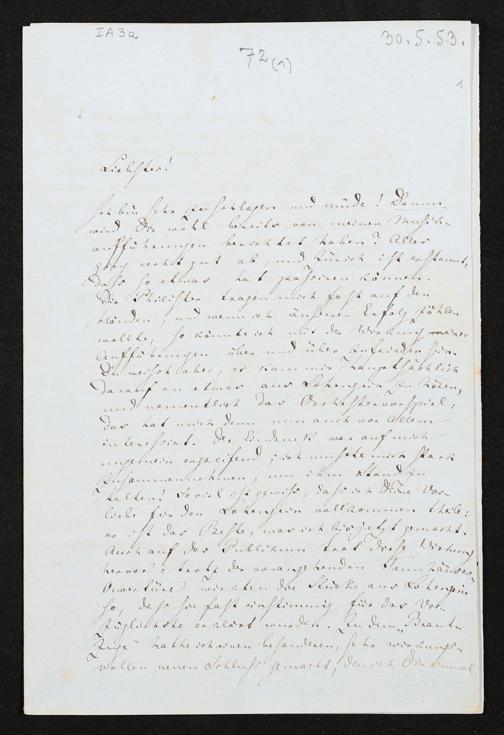 IA3a
30.5.53.
72(1)
1.
Liebster!
Ich bin sehr zerschlagen und müde! Damm
wird Dir wohl bereits von meinen Musik-
aufführungen berichtet haben? Alles
ging recht gut ab, und Zürich ist erstaunt,
dass so etwas hat passiren können.
Die Philister tragen mich fast auf den
Händen, und wenn ich äusseren Erfolg zählen
wollte, so könnte ich mit der Wirkung meiner
Aufführungen über und über zufrieden sein.
Du weisst aber, es kam mir hauptsächlich
darauf an etwas aus Lohengrin zu hören,
und namentlich das Orchestervorspiel:
das hat mich denn nun auch vor Allem
interessirt. Der Eindruck war auf mich
ungemein ergreifend; ich musste mich stark
zusammennehmen, um ihm Stand zu
halten! So viel ist gewiss, dass ich Deine Vor-
liebe für den Lohengrin vollkommen theile:
er ist das Beste, was ich bis jetzt gemacht.
Auch auf das Publikum trat diese Wirkung
hervor: trotz der vorangehenden Tannhäuser-
Ouvertüre wirkten die Stücke aus Lohengrin
so, dass sie fast einstimmig für das Vor-
züglichste erklärt wurden. Zu dem „Braut-
zuge" hatte ich einen besonderen, sehr wirkungs-
vollen neuen Schluss gemacht, den ich Dir einmal